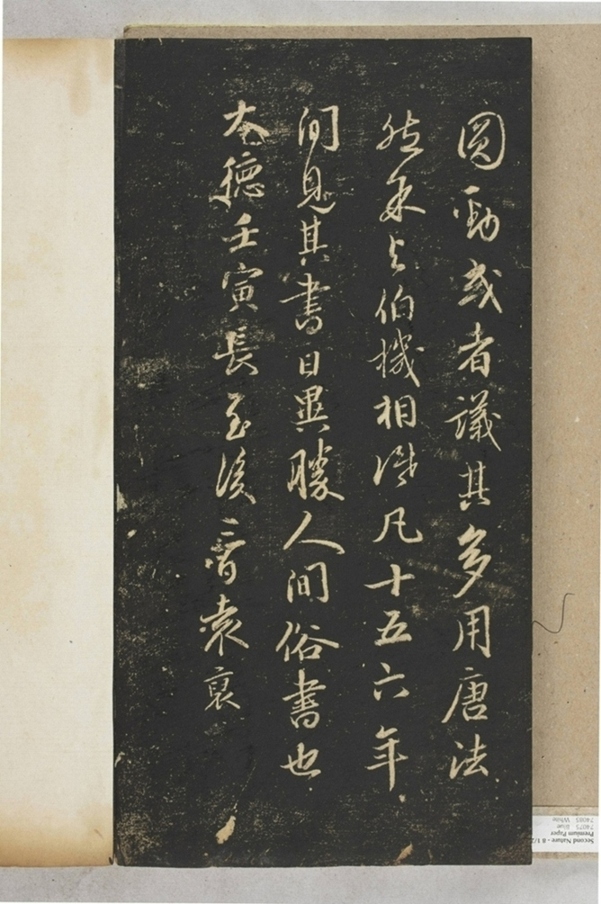 圓勁或者議其多用唐法
然裒与伯機相識凡十五六年
间見其書日異勝人间俗書也
大德壬寅長至後三日袁裒
Second Nature - 8 1/2
Premium Paper
74075 Blue
74085 White